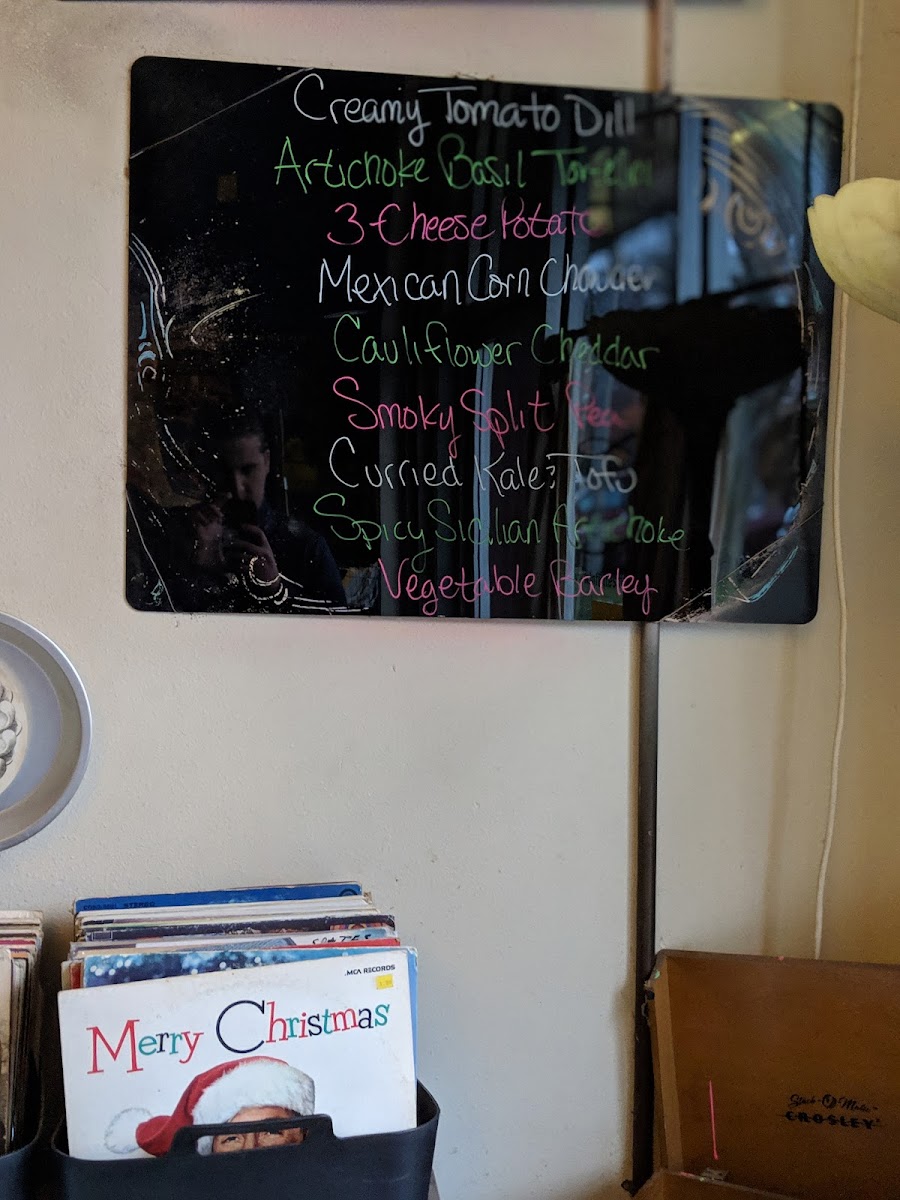 Creamy Tomato Dill
Artichoke Basil Tortellini
3-Cheese Potato
Mexican Corn Chowder
Cauliflower Cheddar
Smoky Split Pea
Curried Kale & Tofu
Spicy Sicilian Artichoke
Vegetable Barley
STEREO
MCA RECORDS
Merry Christmas
Stack-O-Matic
CROSLEY